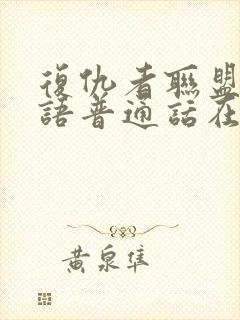 復仇者聯盟
語普通話在
黃泉隼